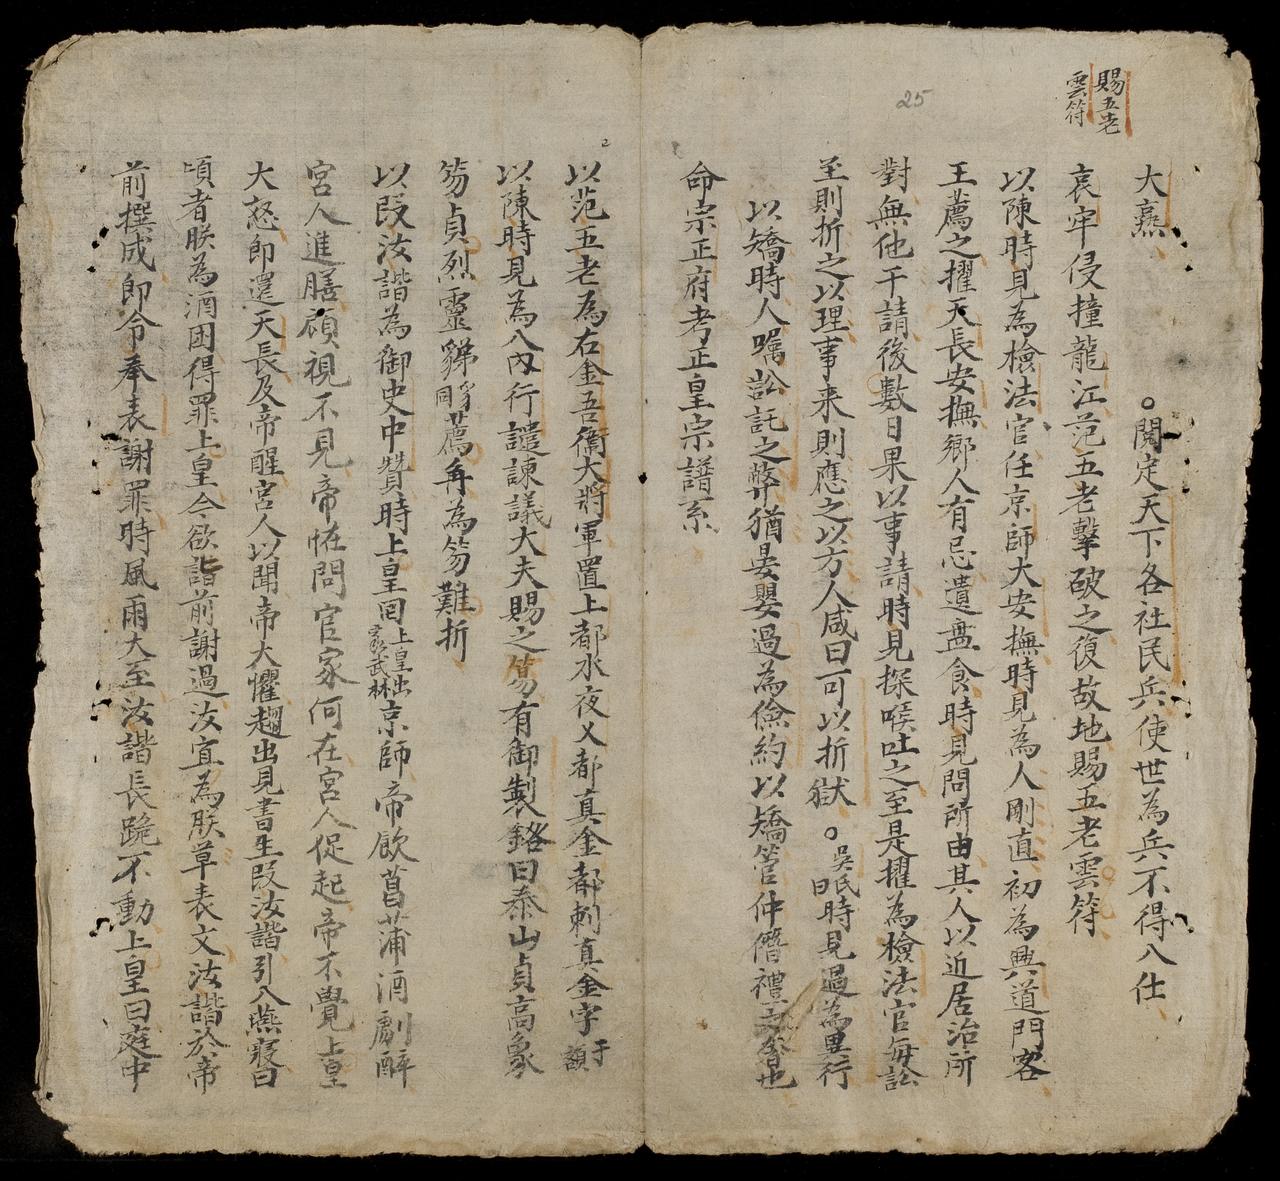 賜五老
雲符
25
大燕 。閱定天下各社民兵使世為兵不得入仕
哀牢侵撞龍江范五老擊破之復故地賜五老雲符
以陳時見為檢法官任京師大安撫時見為人剛直初為興道門客
王薦之擢天長安撫鄉人有忌遺盤食時見問所由其人以近居治所
對無他干請後數日果以事請時見探喉吐之至是擢為檢法官每訟
至則折之以理事来則應之以方人咸曰可以折獄。吳氓時見過為異行
以矯時人囑訟託之弊猶晏嬰過為儉約以矯管仲僭禮也
命宗正府考正皇宗譜系
以范五老為右金吾衞大將軍置上都水夜乂都真金都刺真金字于額
以陳時見為入內行譴諫議大夫賜之笏有御製銘曰泰山貞高象
笏貞烈靈薦再為笏難折
以叚汝諧為御史中贊時上皇回上皇出家武林京師帝飲菖蒲酒劇醉
宮人進膳顧視不見帝恠問官家何在宮人促起帝不覺上皇
大怒即還天長及帝醒宮人以聞帝大懼趨出見書生叚汝諧引入燕寢曰
頃者朕為酒困得罪上皇今欲詣前謝過汝宜為朕草表文汝諧於帝
前撰成即令奉表謝罪時風雨大至汝諧長跪不動上皇曰庭中